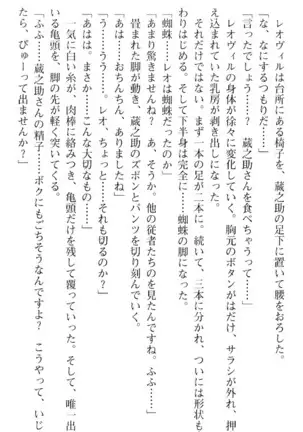 レオヴィルは台所にある椅子を、蔵之助の足下に置いて腰をおろした。
「な、なにするつもりだ……」
「言ったでしょう……? 蔵之助さんを食べちゃうって……」
レオヴィルの身体が徐々に変化していく。胸元のボタンがはだけ、サラシが外れ、押
さえ込まれていた乳房が剥き出しになった。
それだけではない。まず一本の足が二本に。続いて、三本に分かれ、ついには形状も
変わりはじめる。そして下半身は完全に……蜘蛛の脚になった。
「蜘蛛……レオは蜘蛛だったのか」
「あまり驚きませんね? あ、そうか。他の従者たちのを見たんですね。ふふ……」
畳まれた脚が動き、蔵之助のズボンとパンツを切り刻んでいく。
「う……うう……。レオ、ちょっと……それ切るのか……」
「あはっ、おちんちん、ありましたね」
「あはは。まさか……こんな大切なもの……」
一気に白い糸が、肉棒に絡みつき、亀頭だけを残して覆っていった。そして、唯一出
ている亀頭を、脚の先が軽くつついてくる。
「ふふ……蔵之助さんの精子……ボクにもごちそうなんですよ? こうやって、いじっ
たら、ぴゅーって出ませんか?」